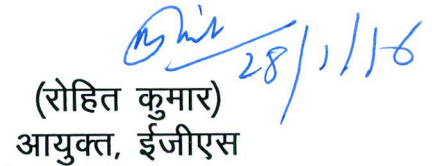 28/1/16
(रोहित कुमार)
आयुक्त, ईजीएस